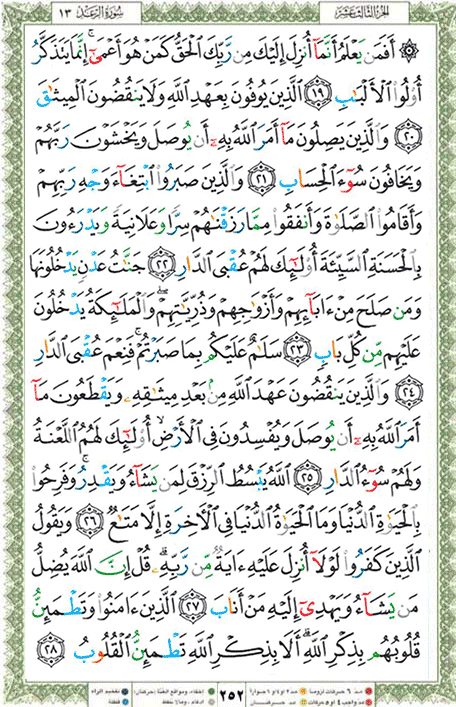 سورة الرعد ١٣ الجزء الثالث عشر
۞ أَفَمَن يَعْلَمُ أَنَّمَآ أُنزِلَ إِلَيْكَ مِن رَّبِّكَ ٱلْحَقُّ كَمَنْ هُوَ أَعْمَىٰٓ ۚ إِنَّمَا يَتَذَكَّرُ
أُو۟لُوا۟ ٱلْأَلْبَـٰبِ ١٩ ٱلَّذِينَ يُوفُونَ بِعَهْدِ ٱللَّهِ وَلَا يَنقُضُونَ ٱلْمِيثَـٰقَ
٢٠ وَٱلَّذِينَ يَصِلُونَ مَآ أَمَرَ ٱللَّهُ بِهِۦٓ أَن يُوصَلَ وَيَخْشَوْنَ رَبَّهُمْ
وَيَخَافُونَ سُوٓءَ ٱلْحِسَابِ ٢١ وَٱلَّذِينَ صَبَرُوا۟ ٱبْتِغَآءَ وَجْهِ رَبِّهِمْ
وَأَقَامُوا۟ ٱلصَّلَوٰةَ وَأَنفَقُوا۟ مِمَّا رَزَقْنَـٰهُمْ سِرًّا وَعَلَانِيَةً وَيَدْرَءُونَ
بِٱلْحَسَنَةِ ٱلسَّيِّئَةَ أُو۟لَـٰٓئِكَ لَهُمْ عُقْبَى ٱلدَّارِ ٢٢ جَنَّـٰتُ عَدْنٍ يَدْخُلُونَهَا
وَمَن صَلَحَ مِنْ ءَابَآئِهِمْ وَأَزْوَٰجِهِمْ وَذُرِّيَّـٰتِهِمْ ۖ وَٱلْمَلَـٰٓئِكَةُ يَدْخُلُونَ
عَلَيْهِم مِّن كُلِّ بَابٍ ٢٣ سَلَـٰمٌ عَلَيْكُم بِمَا صَبَرْتُمْ ۚ فَنِعْمَ عُقْبَى ٱلدَّارِ
٢٤ وَٱلَّذِينَ يَنقُضُونَ عَهْدَ ٱللَّهِ مِنۢ بَعْدِ مِيثَـٰقِهِۦ وَيَقْطَعُونَ مَآ
أَمَرَ ٱللَّهُ بِهِۦٓ أَن يُوصَلَ وَيُفْسِدُونَ فِى ٱلْأَرْضِ ۙ أُو۟لَـٰٓئِكَ لَهُمُ ٱللَّعْنَةُ
وَلَهُمْ سُوٓءُ ٱلدَّارِ ٢٥ ٱللَّهُ يَبْسُطُ ٱلرِّزْقَ لِمَن يَشَآءُ وَيَقْدِرُ ۚ وَفَرِحُوا۟
بِٱلْحَيَوٰةِ ٱلدُّنْيَا وَمَا ٱلْحَيَوٰةُ ٱلدُّنْيَا فِى ٱلْـَٔاخِرَةِ إِلَّا مَتَـٰعٌ ٢٦ وَيَقُولُ
ٱلَّذِينَ كَفَرُوا۟ لَوْلَآ أُنزِلَ عَلَيْهِ ءَايَةٌ مِّن رَّبِّهِۦ ۗ قُلْ إِنَّ ٱللَّهَ يُضِلُّ
مَن يَشَآءُ وَيَهْدِىٓ إِلَيْهِ مَنْ أَنَابَ ٢٧ ٱلَّذِينَ ءَامَنُوا۟ وَتَطْمَئِنُّ
قُلُوبُهُم بِذِكْرِ ٱللَّهِ ۗ أَلَا بِذِكْرِ ٱللَّهِ تَطْمَئِنُّ ٱلْقُلُوبُ ٢٨
٢٥٢